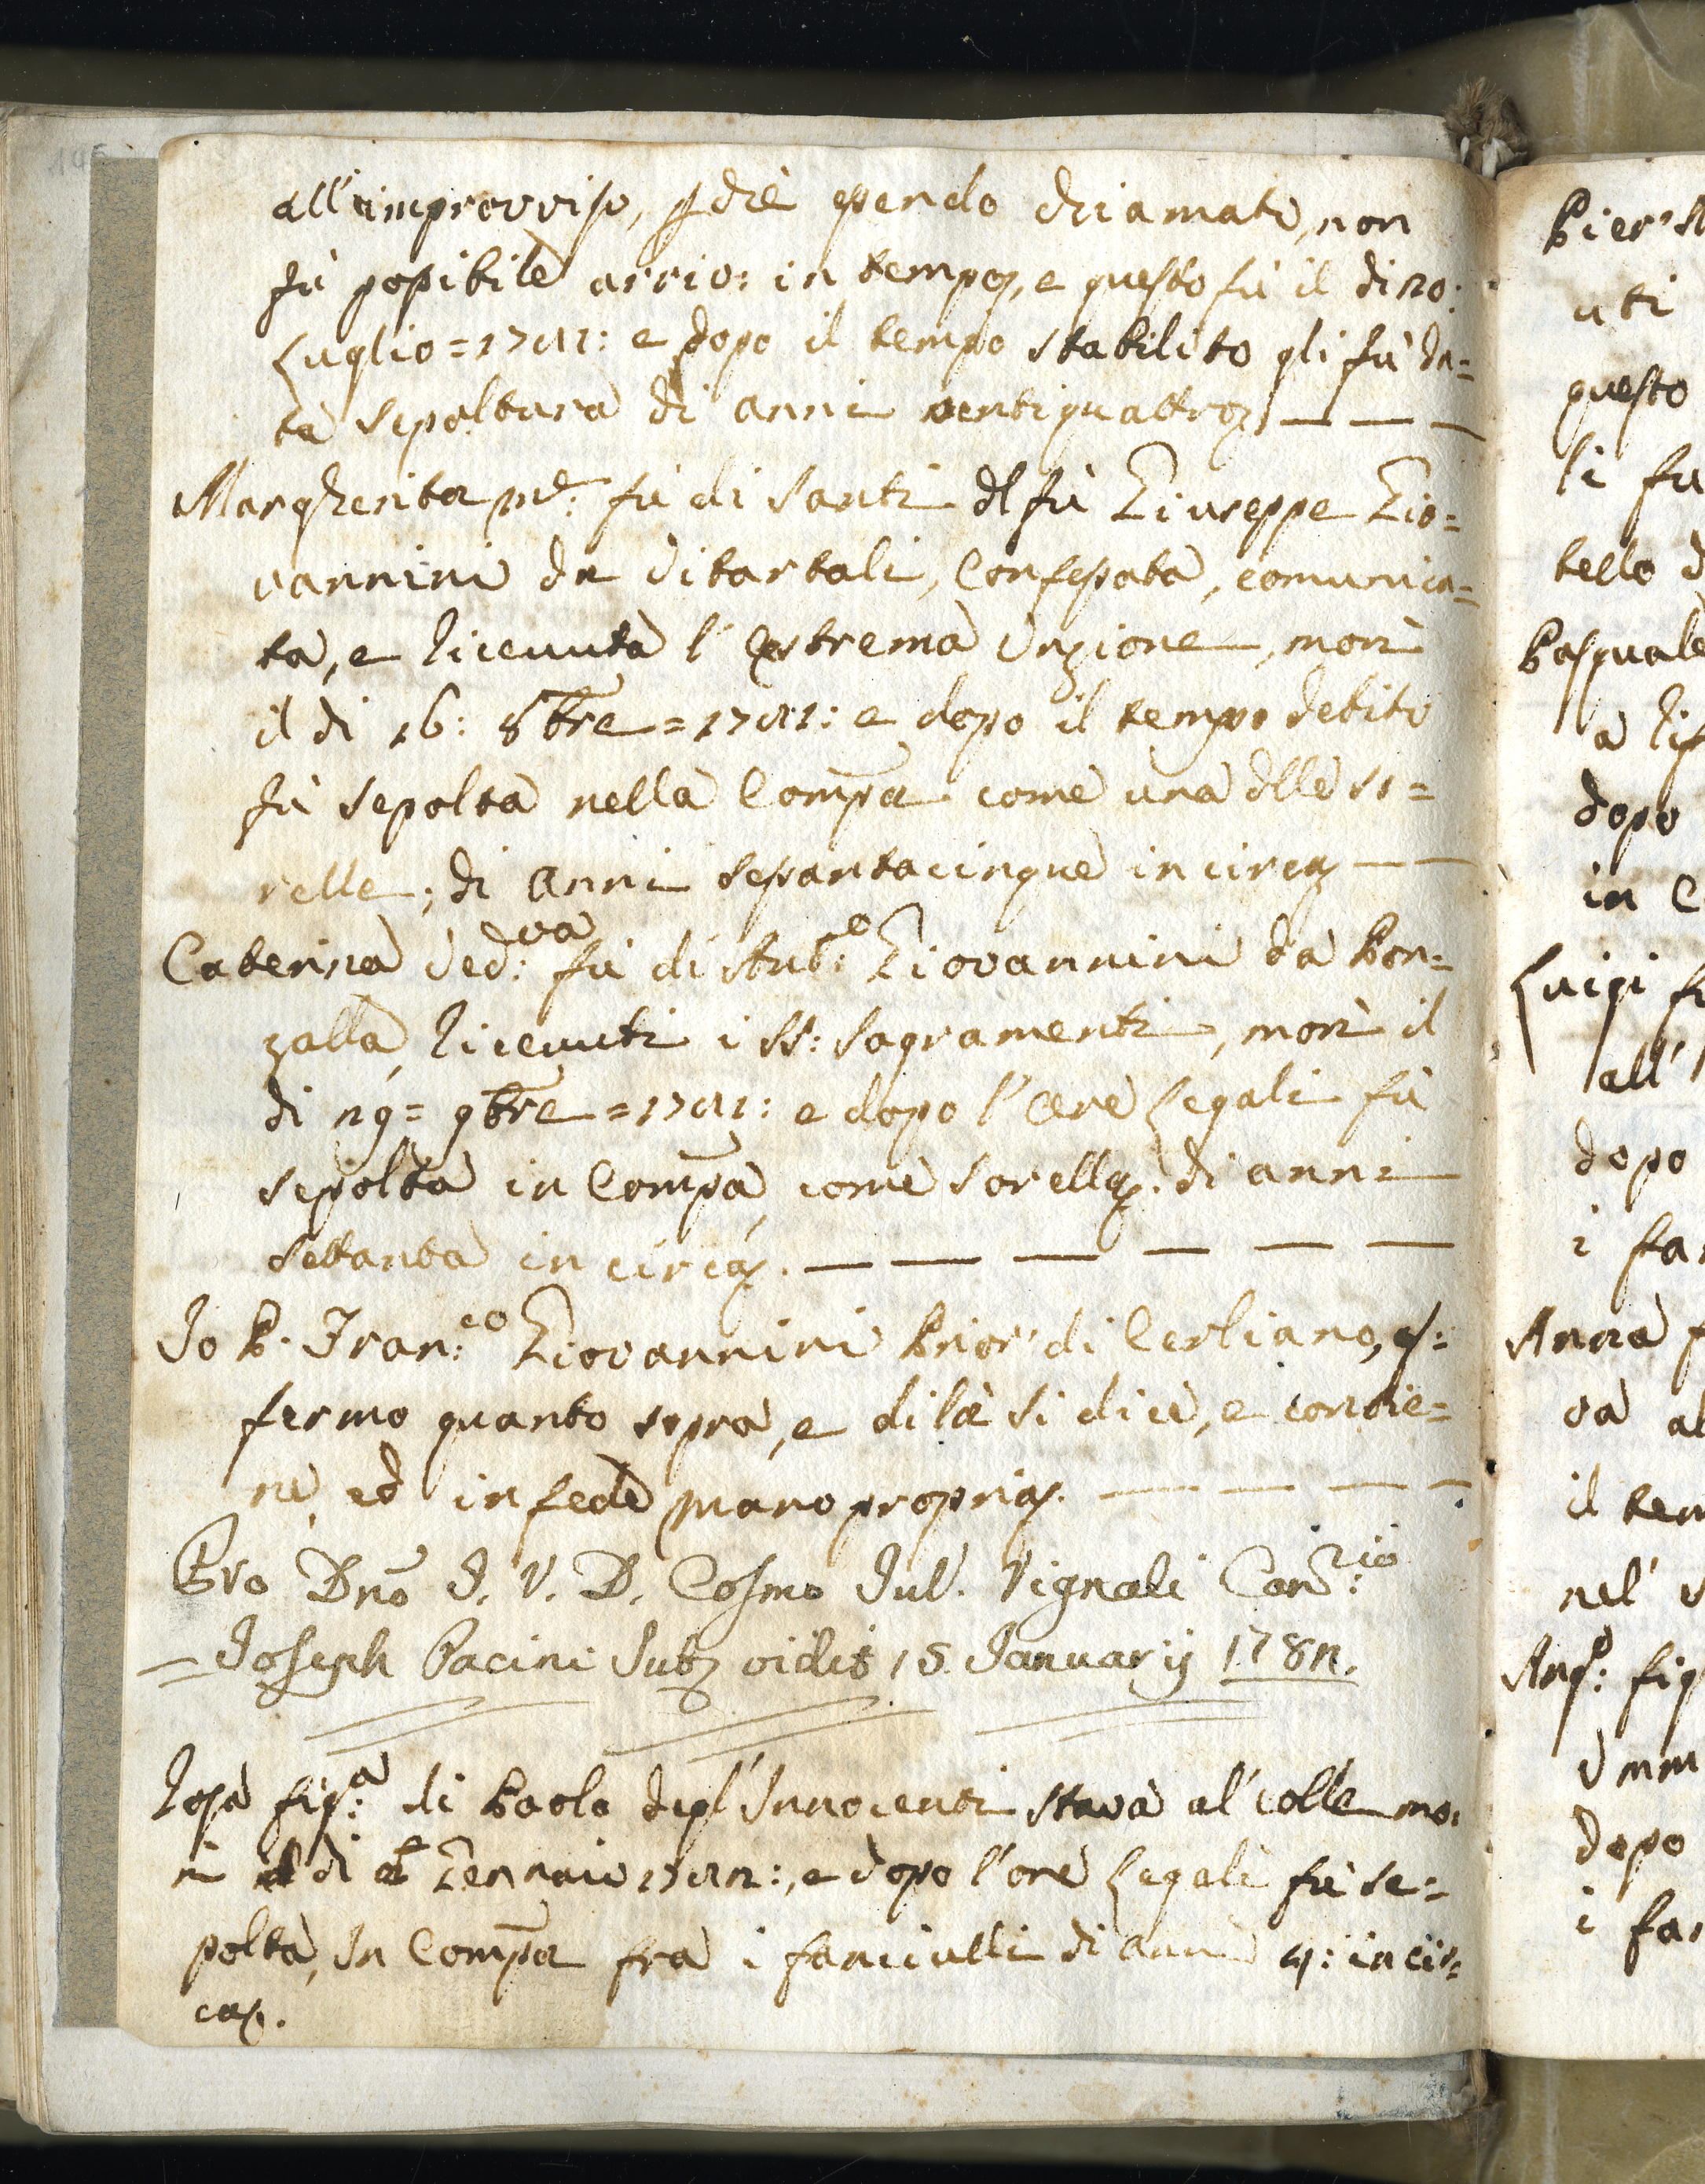 all'improvviso, p che essendo chiamato, non
fù possibile arriv: in tempo, e questo fù il di 20:
Luglio = 1781: e dopo il tempo stabilito gli fù da=
ta sepoltura di anni ventiquattro
Margherita m.e: fù di Santi dl fù Giuseppe Gio=
vannini da Vitartali, Confessata, comunica=
ta, e ricevuta l'estrema Unzione, morì
il di 16: 8bre = 1781: e dopo il tempo debito
fù sepolta nella Compa come una dlle so=
relle; di anni sessantacinque in circa
Caterina Ved:va fù di Giovannini da Bon=
zalla, ricevuti i SS: Sagramenti, morì il
di 29= 9bre = 1781: e dopo l'ore legali fù
sepolta in Compa come sorella. di anni
settanta in circa.
Io P. Fran:co Giovannini Prior' di Cerliano, af:
fermo quanto sopra, e di là si dice, e contie=
ne, ed in fede mano propria.
Pro Dno J. V. D. Cosmo Jul. Vignali Can:rio
= Joseph Pacini Sub vidit 15 Januarij 1782.
Rosa fig:a di Paolo degl'Innocenti stava al'colle mo.
ri il di Gennaio 1782:, e dopo l'ore legali fù se=
polta, in Compa fra i fanciulli di anni 4: in cir=
ca.
Pier'
uti
questo
li fu
tello d
Pasquale
dopo
in C
Luigi
all'
dopo
i fa
Anna
va al
il tem
nel'
Ang:o fig
dopo
i fa